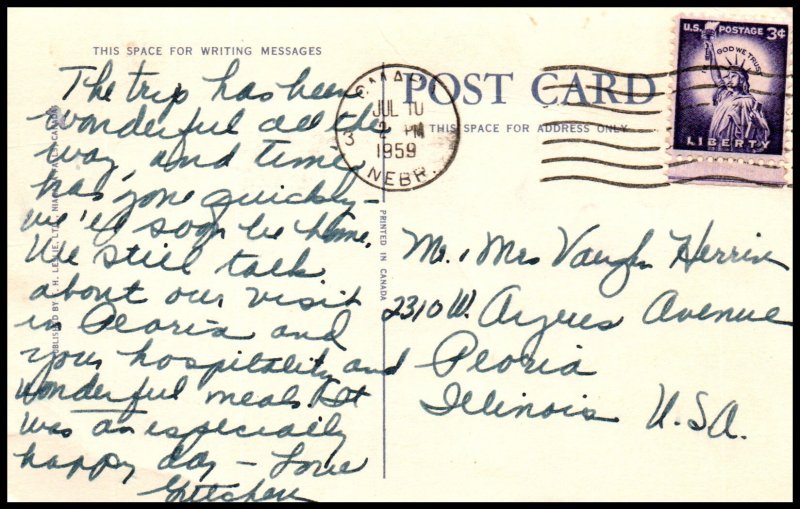 THIS SPACE FOR WRITING MESSAGES
The trip has been
wonderful all the
way, and time
has gone quickly -
we'll soon be home.
We still talk
about our visit
in Peoria and
your hospitality and
wonderful meals. It
was an especially
happy day - Love
Gretchen
PUBLISHED BY F. H. LESLIE, LTD., NIAGARA FALLS, CANADA
PRINTED IN CANADA
POST CARD
THIS SPACE FOR ADDRESS ONLY
OMAHA
JUL 10
2 PM
1959
3
NEBR.
U.S. POSTAGE 3¢
IN GOD WE TRUST
LIBERTY
Mr. , Mrs Vaughn
2310 W. Avenue
Peoria
Illinois U.S.A.